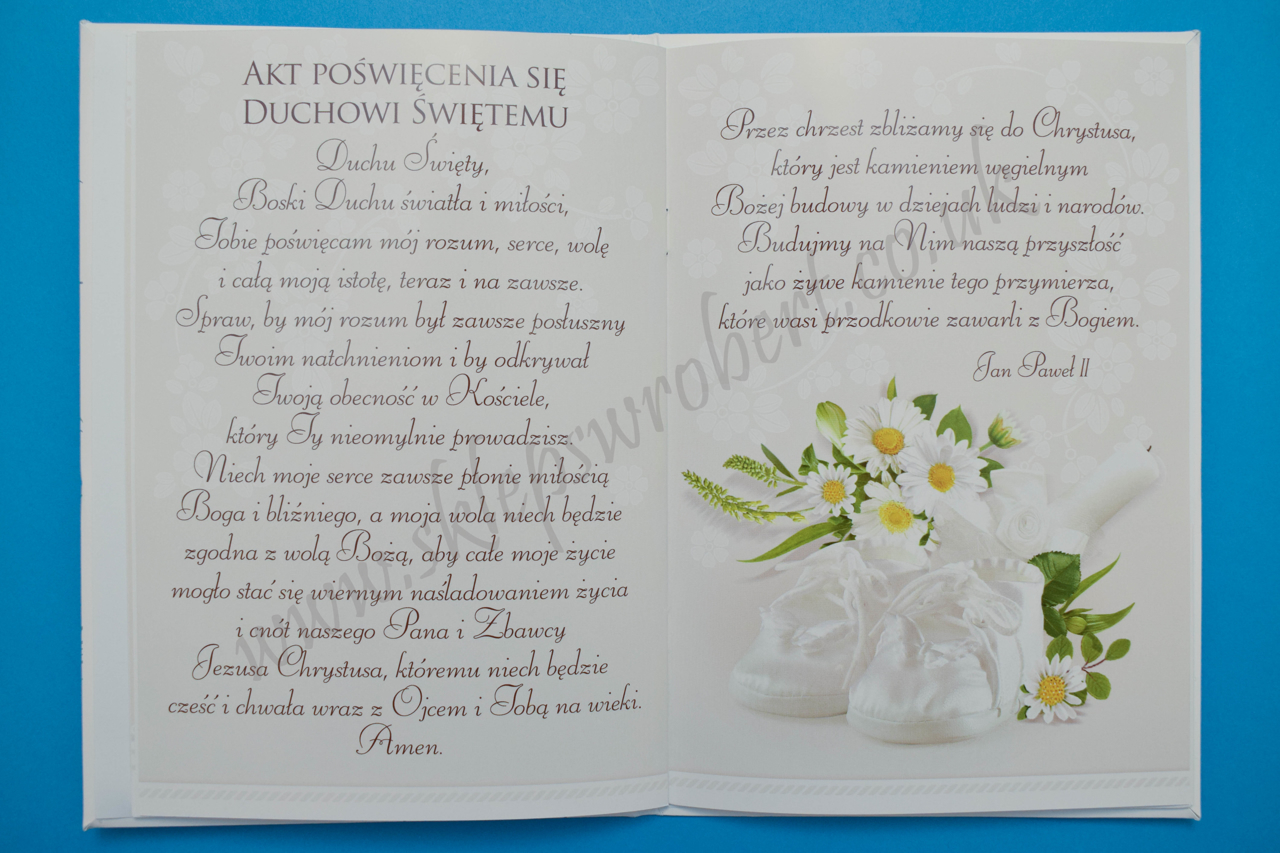 AKT POŚWIĘCENIA SIĘ
DUCHOWI ŚWIĘTEMU
Duchu Święty,
Boski Duchu światła i miłości,
Tobie poświęcam mój rozum, serce, wolę
i całą moją istotę, teraz i na zawsze.
Spraw, by mój rozum był zawsze posłuszny
Twoim natchnieniom i by odkrywał
Twoją obecność w Kościele,
który Ty nieomylnie prowadzisz.
Niech moje serce zawsze płonie miłością
Boga i bliźniego, a moja wola niech będzie
zgodna z wolą Bożą, aby całe moje życie
mogło stać się wiernym naśladowaniem życia
i cnót naszego Pana i Zbawcy
Jezusa Chrystusa, któremu niech będzie
cześć i chwała wraz z Ojcem i Tobą na wieki.
Amen.
Przez chrzest zbliżamy się do Chrystusa,
który jest kamieniem węgielnym
Bożej budowy w dziejach ludzi i narodów.
Budujmy na Nim naszą przyszłość
jako żywe kamienie tego przymierza,
które wasi przodkowie zawarli z Bogiem.
Jan Paweł II
www.sklepswrobert.co.uk